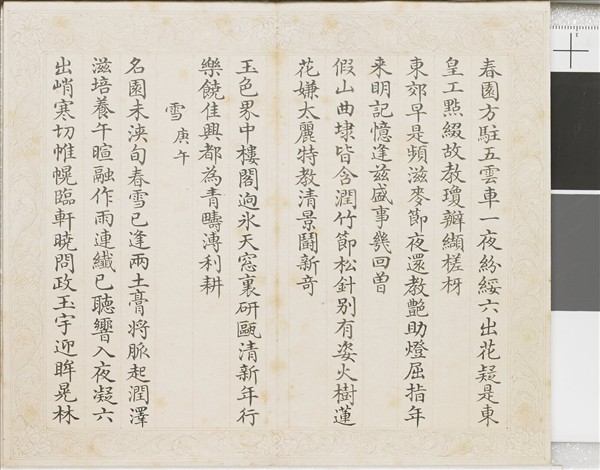 春園方駐五雲車一夜紛綏六出花疑是東
皇工點綴故教瓊瓣纈槎枒
東郊早是頻滋麥節夜還教艷助燈屈指年
来明記憶逢兹盛事幾回曽
假山曲埭皆含潤竹節松針别有姿火樹蓮
花嫌太麗特教清景鬭新竒
玉色界中樓閣逈氷天窓裏研甌清新年行
樂饒佳興都為青疇溥利耕
雪庚午
名園未浹旬春雪已逢兩土膏将脈起潤澤
滋培養午暄融作雨連纎已聴響入夜凝六
出峭寒切帷幌臨軒曉問政玉宇迎眸晃林